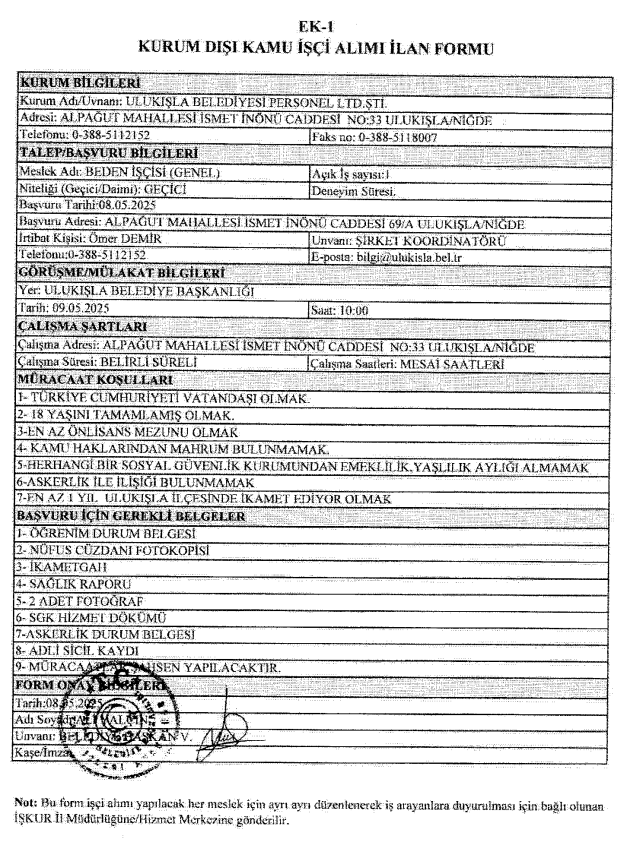 EK-1
KURUM DIŞI KAMU İŞÇİ ALIMI İLAN FORMU
KURUM BİLGİLERİ
Kurum Adı/Uvnanı: ULUKIŞLA BELEDİYESİ PERSONEL LTD.ŞTİ.
Adresi: ALPAĞUT MAHALLESİ İSMET İNÖNÜ CADDESİ NO:33 ULUKIŞLA/NİĞDE
Telefonu: 0-388-5112152 Faks no: 0-388-5118007
TALEP/BAŞVURU BİLGİLERİ
Meslek Adı: BEDEN İŞÇİSİ (GENEL) Açık İş sayısı:1
Niteliği (Geçici/Daimi): GEÇİCİ Deneyim Süresi.
Başvuru Tarihi:08.05.2025
Başvuru Adresi: ALPAĞUT MAHALLESİ İSMET İNÖNÜ CADDESİ 69/A ULUKIŞLA/NİĞDE
İrtibat Kişisi: Ömer DEMİR Unvanı: ŞİRKET KOORDİNATÖRÜ
Telefonu:0-388-5112152 E-posta: bilgi@ulukisla.bel.tr
GÖRÜŞME/MÜLAKAT BİLGİLERİ
Yer: ULUKIŞLA BELEDİYE BAŞKANLIĞI
Tarih: 09.05.2025 Saat: 10:00
ÇALIŞMA ŞARTLARI
Çalışma Adresi: ALPAĞUT MAHALLESİ İSMET İNÖNÜ CADDESİ NO:33 ULUKIŞLA/NİĞDE
Çalışma Süresi: BELİRLİ SÜRELİ Çalışma Saatleri: MESAİ SAATLERİ
MÜRACAAT KOŞULLARI
1- TÜRKİYE CUMHURİYETİ VATANDAŞI OLMAK.
2- 18 YAŞINI TAMAMLAMIŞ OLMAK.
3-EN AZ ÖNLİSANS MEZUNU OLMAK
4- KAMU HAKLARINDAN MAHRUM BULUNMAMAK.
5-HERHANGİ BİR SOSYAL GÜVENLİK KURUMUNDAN EMEKLİLİK,YAŞLILIK AYLIĞI ALMAMAK
6-ASKERLİK İLE İLİŞİĞİ BULUNMAMAK
7-EN AZ 1 YIL ULUKIŞLA İLÇESİNDE İKAMET EDİYOR OLMAK
BAŞVURU İÇİN GEREKLİ BELGELER
1- ÖĞRENİM DURUM BELGESİ
2- NÜFUS CÜZDANI FOTOKOPİSİ
3- İKAMETGAH
4- SAĞLIK RAPORU
5- 2 ADET FOTOĞRAF
6- SGK HİZMET DÖKÜMÜ
7-ASKERLİK DURUM BELGESİ
8- ADLİ SİCİL KAYDI
9- MÜRACAATLAR ŞAHSEN YAPILACAKTIR.
FORM ONAY BİLGİLERİ
Tarih:08.05.2025
Adı Soyadı:
Unvanı: BELEDİYE BAŞKAN V.
Kaşe/İmza
Not: Bu form işçi alımı yapılacak her meslek için ayrı ayrı düzenlenerek iş arayanlara duyurulması için bağlı olunan
İŞKUR İl Müdürlüğüne/Hizmet Merkezine gönderilir.